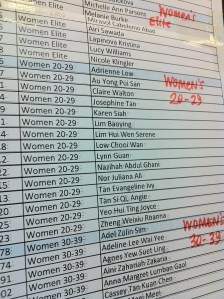 Michelle Ann Parsons
Women Elite Melanie Burke
Women Elite Airi Sawada
Women Elite Lapinova Kristina
Women Elite Lucy Williams
Women Elite Nicole Klingler
Women 20-29 Adrienne Low
Women 20-29 Au Yong Pui San
Women 20-29 Claire Walton
Women 20-29 Josephine Tan
Women 20-29 Karen Siah
Women 20-29 Lim Baoying
Women 20-29 Lim Hui Wen Serene
Women 20-29 Low Chooi Wan
Women 20-29 Lynn Guan
Women 20-29 Nazihah Abdul Ghani
Women 20-29 Nor Juliana Ali
Women 20-29 Tan Evangeline Ivy
Women 20-29 Tan Si QL Angie
Women 20-29 Yeo Hui Ting Joyce
Women 20-29 Zheng Weixiu Roanna
Women 30-39 Adel Zulin Sim
Women 30-39 Adeline Lee Wai Yee
Women 30-39 Agnes Yew Suet Ling
Women 30-39 Aini Zahariah Zakaria
Women 30-39 Anna Margret Lumban Gaol
Women 30-39 Cassey Tan Kuan Chen
WOMEN'S
Elite
WOMEN'S
20-29
WOMEN'S
30-39